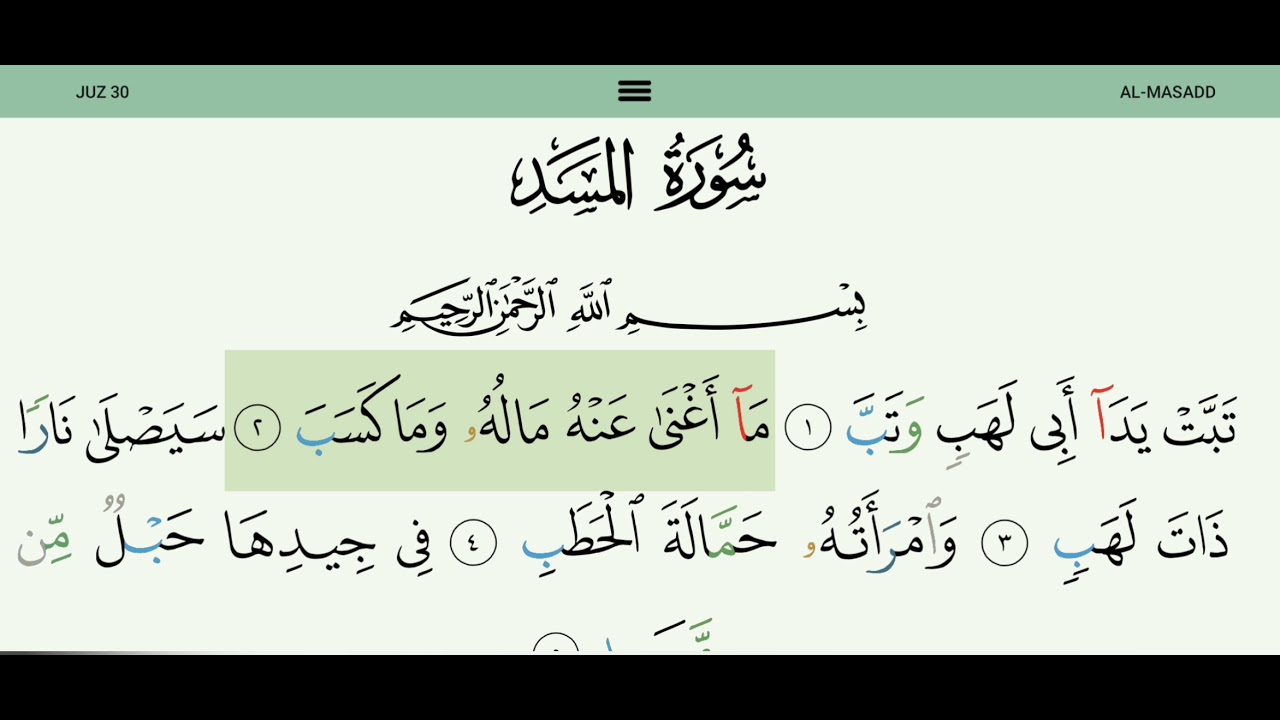 JUZ 30
AL-MASADD
سُورَةُ المَسَدِ
بِسْمِ اللَّهِ الرَّحْمَٰنِ الرَّحِيمِ
تَبَّتْ يَدَآ أَبِى لَهَبٍ وَتَبَّ ١ مَآ أَغْنَىٰ عَنْهُ مَالُهُۥ وَمَا كَسَبَ ٢ سَيَصْلَىٰ نَارًا
ذَاتَ لَهَبٍ ٣ وَٱمْرَأَتُهُۥ حَمَّالَةَ ٱلْحَطَبِ ٤ فِى جِيدِهَا حَبْلٌ مِّن